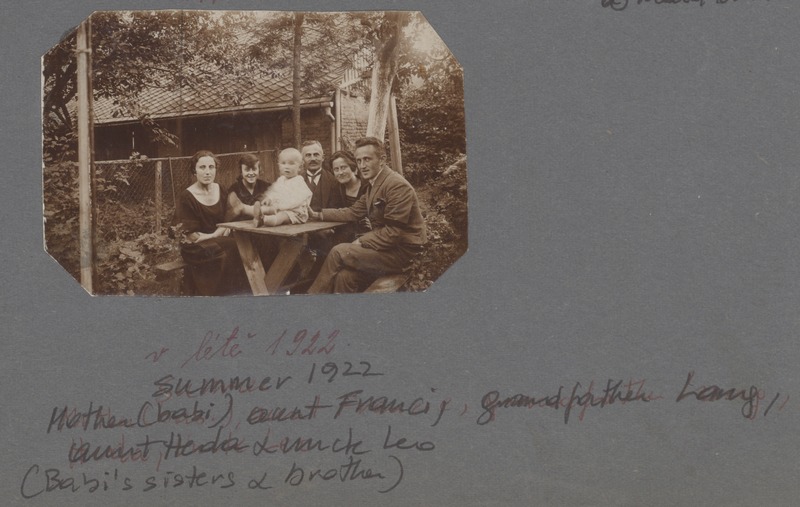 v létě 1922.
summer 1922
Mother (babi), aunt Francis, grandfather Lang,
aunt Heda & uncle Leo
(Babi's sisters & brother)